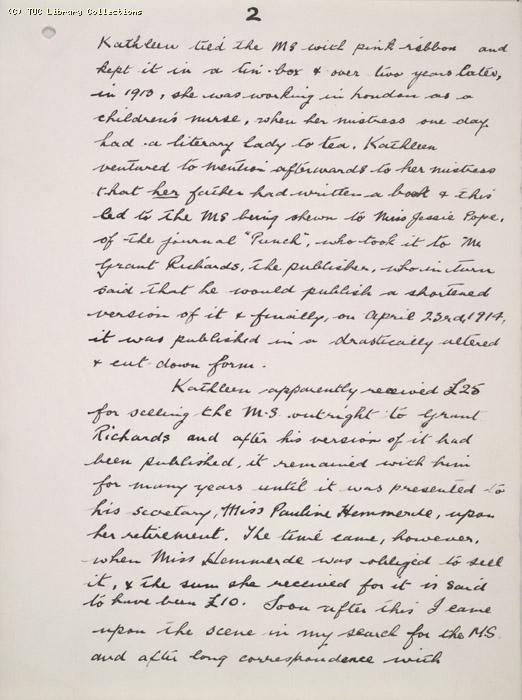 (C) TUC Library Collections
2
Kathleen tied the MS with pink ribbon and
kept it in a tin-box & over two years later,
in 1913, she was working in London as a
children's nurse, when her mistress one day
had a literary lady to tea. Kathleen
ventured to mention afterwards to her mistress
that her father had written a book & this
led to the MS being shewn to Miss Jessie Pope,
of the journal "Punch", who took it to Mr
Grant Richards, the publisher, who in turn
said that he would publish a shortened
version of it & finally, on April 23rd 1914,
it was published in a drastically altered
& cut down form.
Kathleen apparently received £25
for selling the M.S. outright to Grant
Richards and after his version of it had
been published, it remained with him
for many years until it was presented to
his secretary, Miss Pauline Hemmerde, upon
her retirement. The time came, however,
when Miss Hemmerde was obliged to sell
it, & the sum she received for it is said
to have been £10. Soon after this I came
upon the scene in my search for the M.S.
and after long correspondence with